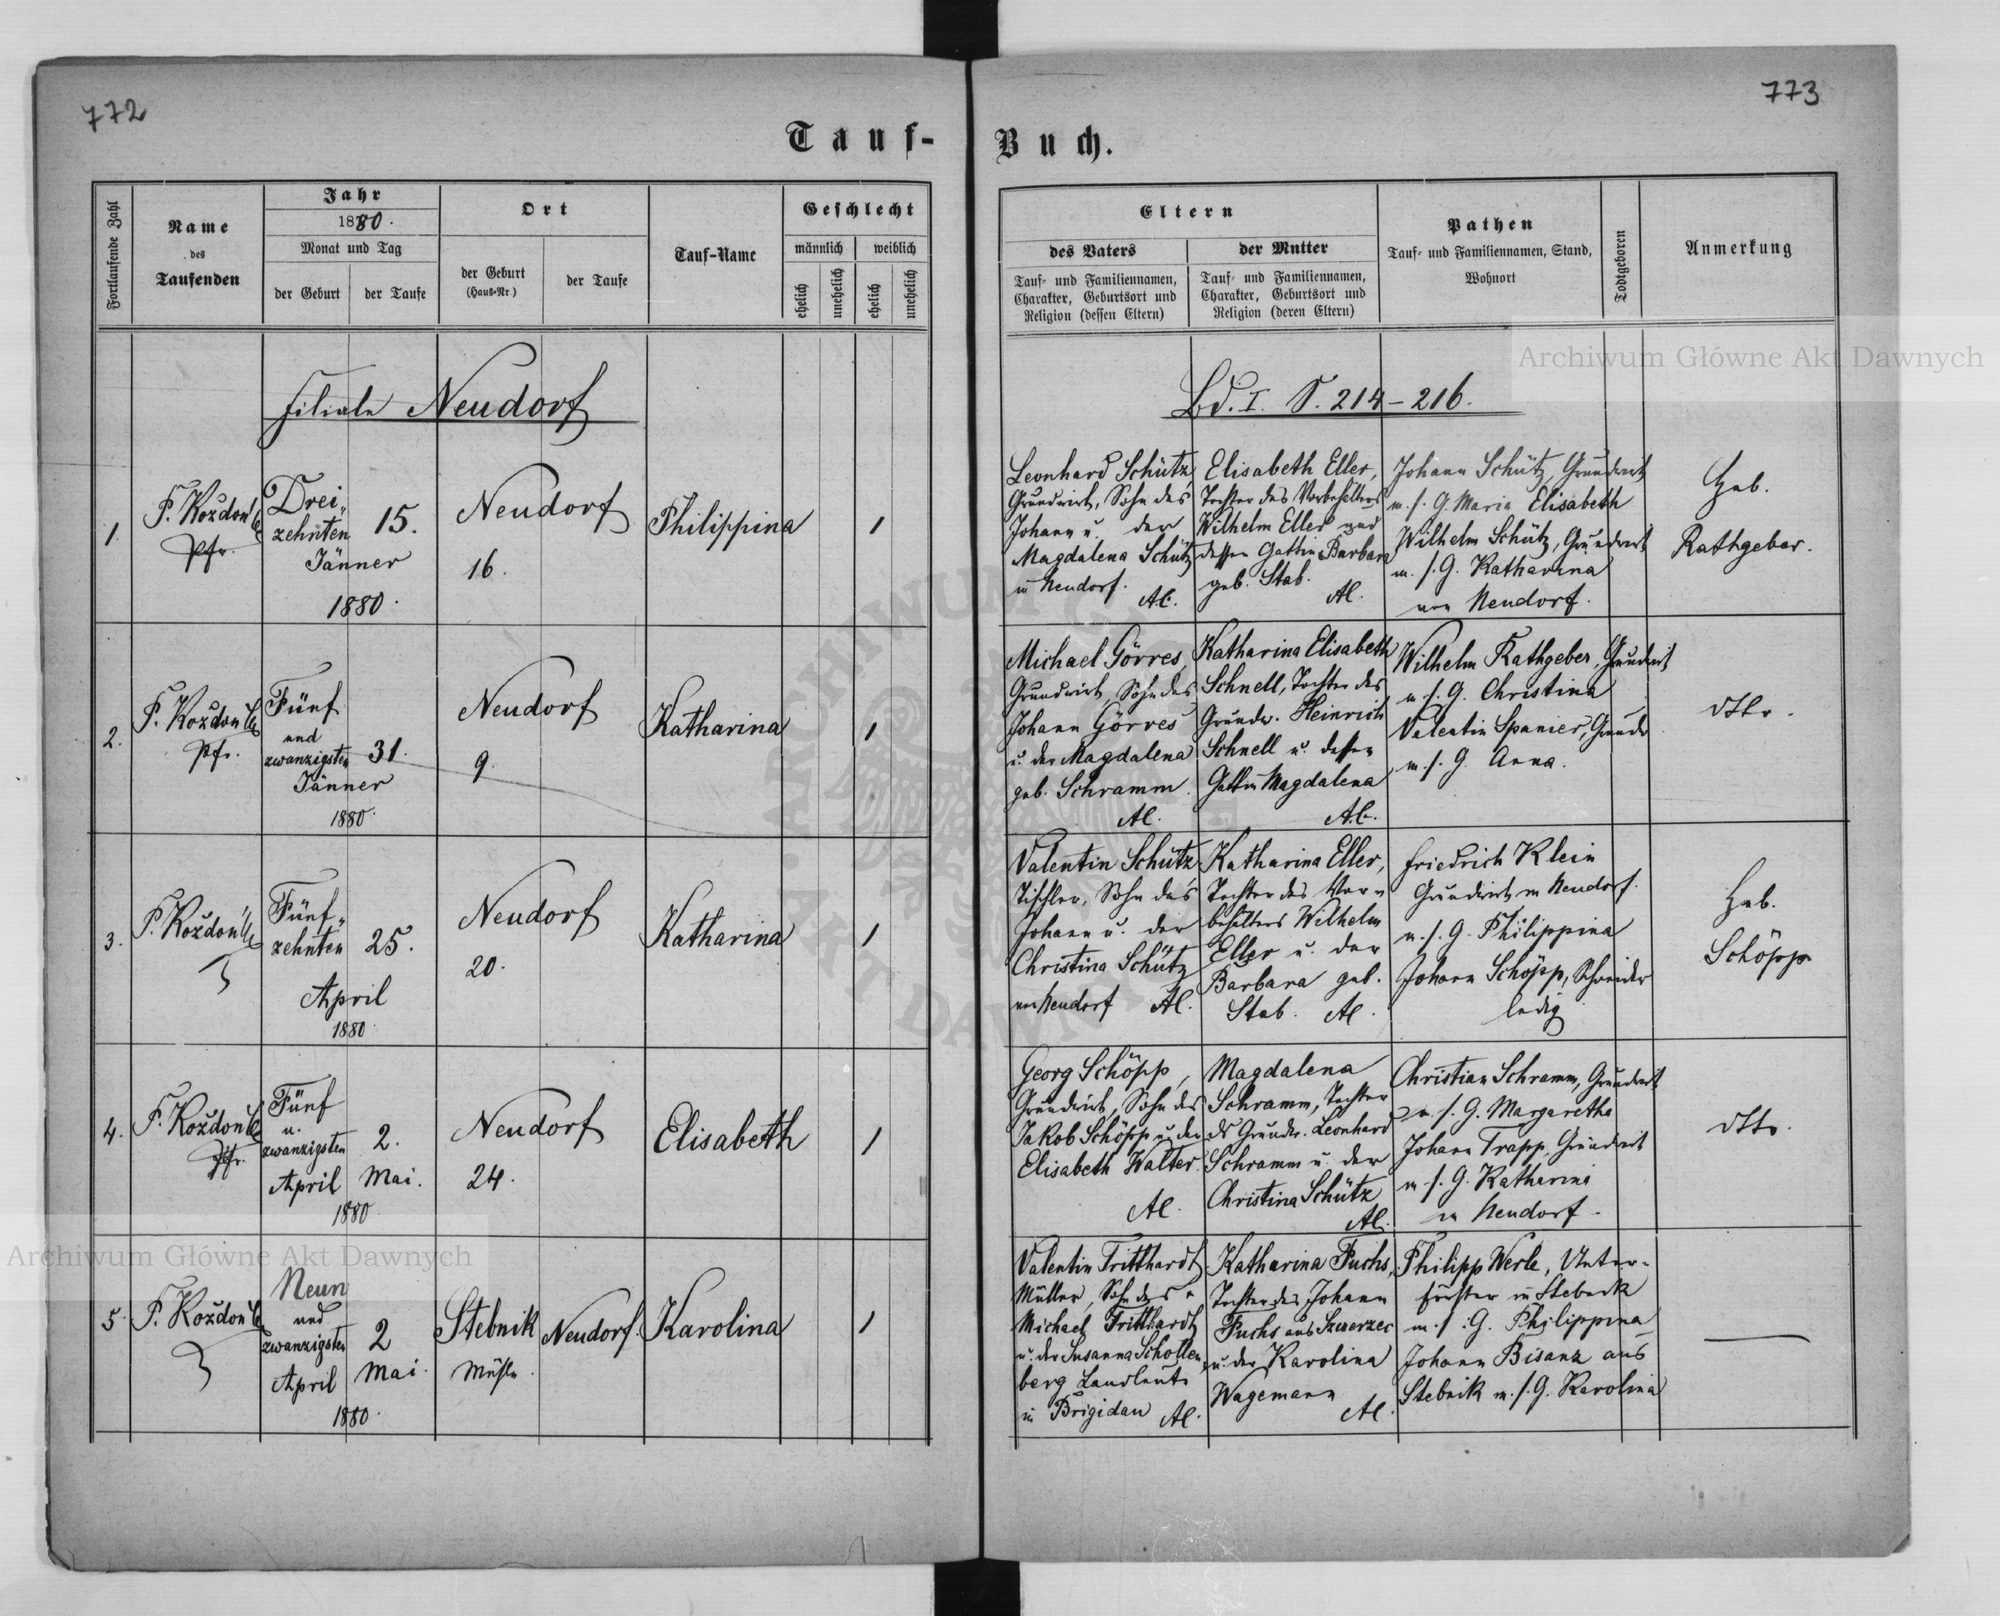 772
773
Tauf-
Buch.
Fortlaufende Zahl
Name
des
Taufenden
Jahr
1880.
Monat und Tag
der Geburt
der Taufe
Ort
der Geburt
(Haus-Nr)
der Taufe
Tauf-Name
Geschlecht
männlich
weiblich
ehelich
unehelich
ehelich
unehelich
Eltern
des Vaters
Tauf- und Familiennamen,
Charakter, Geburtsort und
Religion (dessen Eltern)
der Mutter
Tauf- und Familiennamen,
Charakter, Geburtsort und
Religion (deren Eltern)
Pathen
Tauf- und Familiennamen, Stand,
Wohnort
Todtgeboren
Anmerkung
Filiale Neudorf
Bd. I. S. 214-216.
1.
Pfr.
Drei-
zehnten
Jänner
1880.
15.
Neudorf
16.
Philippina
1
Leonhard Schütz,
Grundwirt, Sohn des
Johann u. der
Magdalena Schütz
in Neudorf.
AC.
Elisabeth Eller,
Tochter des Vorbehälters
Wilhelm Eller und
dessen Gattin Barbara
geb. Stab.
AC.
Johann Schütz, Grundwirt
m. s. G. Maria Elisabeth
Wilhelm Schütz, Grundwirt
m. s. G. Katharina
von Neudorf.
Heb.
Rathgeber.
2.
Pfr.
Fünf
und
zwanzigsten
Jänner
1880.
31.
Neudorf
9.
Katharina
1
Michael Görres,
Grundwirt, Sohn des
Johann Görres
u. der Magdalena
geb. Schramm.
AC.
Katharina Elisabeth
Schnell, Tochter des
Grundw. Heinrich
Schnell u. dessen
Gattin Magdalena
AC.
Wilhelm Rathgeber, Grundwirt
m. s. G. Christina
Valentin Spanier, Grundw
m. s. G. Anna.
dtto.
3.
Fünf-
zehnten
April
1880
25.
Neudorf
20.
Katharina
1
Valentin Schütz
Tischler, Sohn des
Johann u. der
Christina Schütz
von Neudorf AC.
Katharina Eller,
Tochter des Vor-
behälters Wilhelm
Eller u. der
Barbara geb.
Stab. AC.
Friedrich Klein
Grundwirt in Neudorf.
m. s. G. Philippina
Johann Schöpp, Schneider
ledig
Heb.
Schöpp
4.
Pfr.
Fünf
u.
zwanzigsten
April
1880
2.
Mai.
Neudorf
24.
Elisabeth
1
Georg Schöpp,
Grundwirt, Sohn des
Jakob Schöpp u. der
Elisabeth Walter.
AC.
Magdalena
Schramm, Tochter
ds Grundw. Leonhard
Schramm u. der
Christina Schütz
AC.
Christian Schramm, Grundwirt
m. s. G. Margaretha
Johann Trapp, Grundwirt
m. s. G. Katharina
in Neudorf.
dtto.
5.
Neun
und
zwanzigsten
April
1880.
2
Mai.
Stebnik
Mühle.
Neudorf.
Karolina
1
Valentin Tritthardt
Müller, Sohn des
Michael Tritthardt
u. der Susanna Schollen
berg Landleute
in Brigidau AC.
Katharina Fuchs,
Tochter des Johann
Fuchs aus
u. der Karolina
Wagemann
AC.
Philipp Werle, Unter-
förster in Stebnik
m. s. G. Philippina
Johann Bisanz aus
Stebnik m. s. G. Karolina
Archiwum Główne Akt Dawnych
Archiwum Główne Akt Dawnych